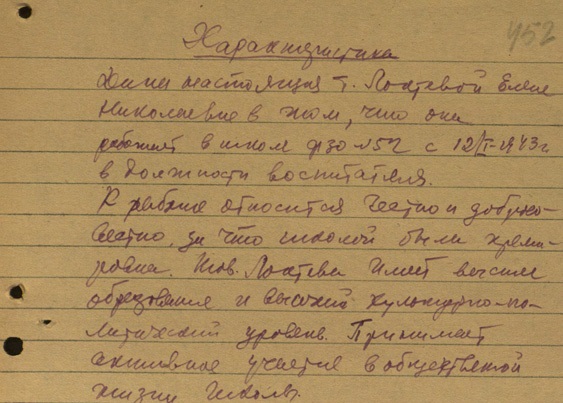 452
Характеристика
Дана настоящая т. Локтевой Елене
Николаевне в том, что она
работает в школе ФЗО №52 с 12/I-1943г
в должности воспитателя.
К работе относится честно и добросо-
вестно, за что школой была преми-
рована. Тов. Локтева имеет высшее
образование и высокий культурно-по-
литический уровень. Принимает
активное участие в общественной
жизни школы.